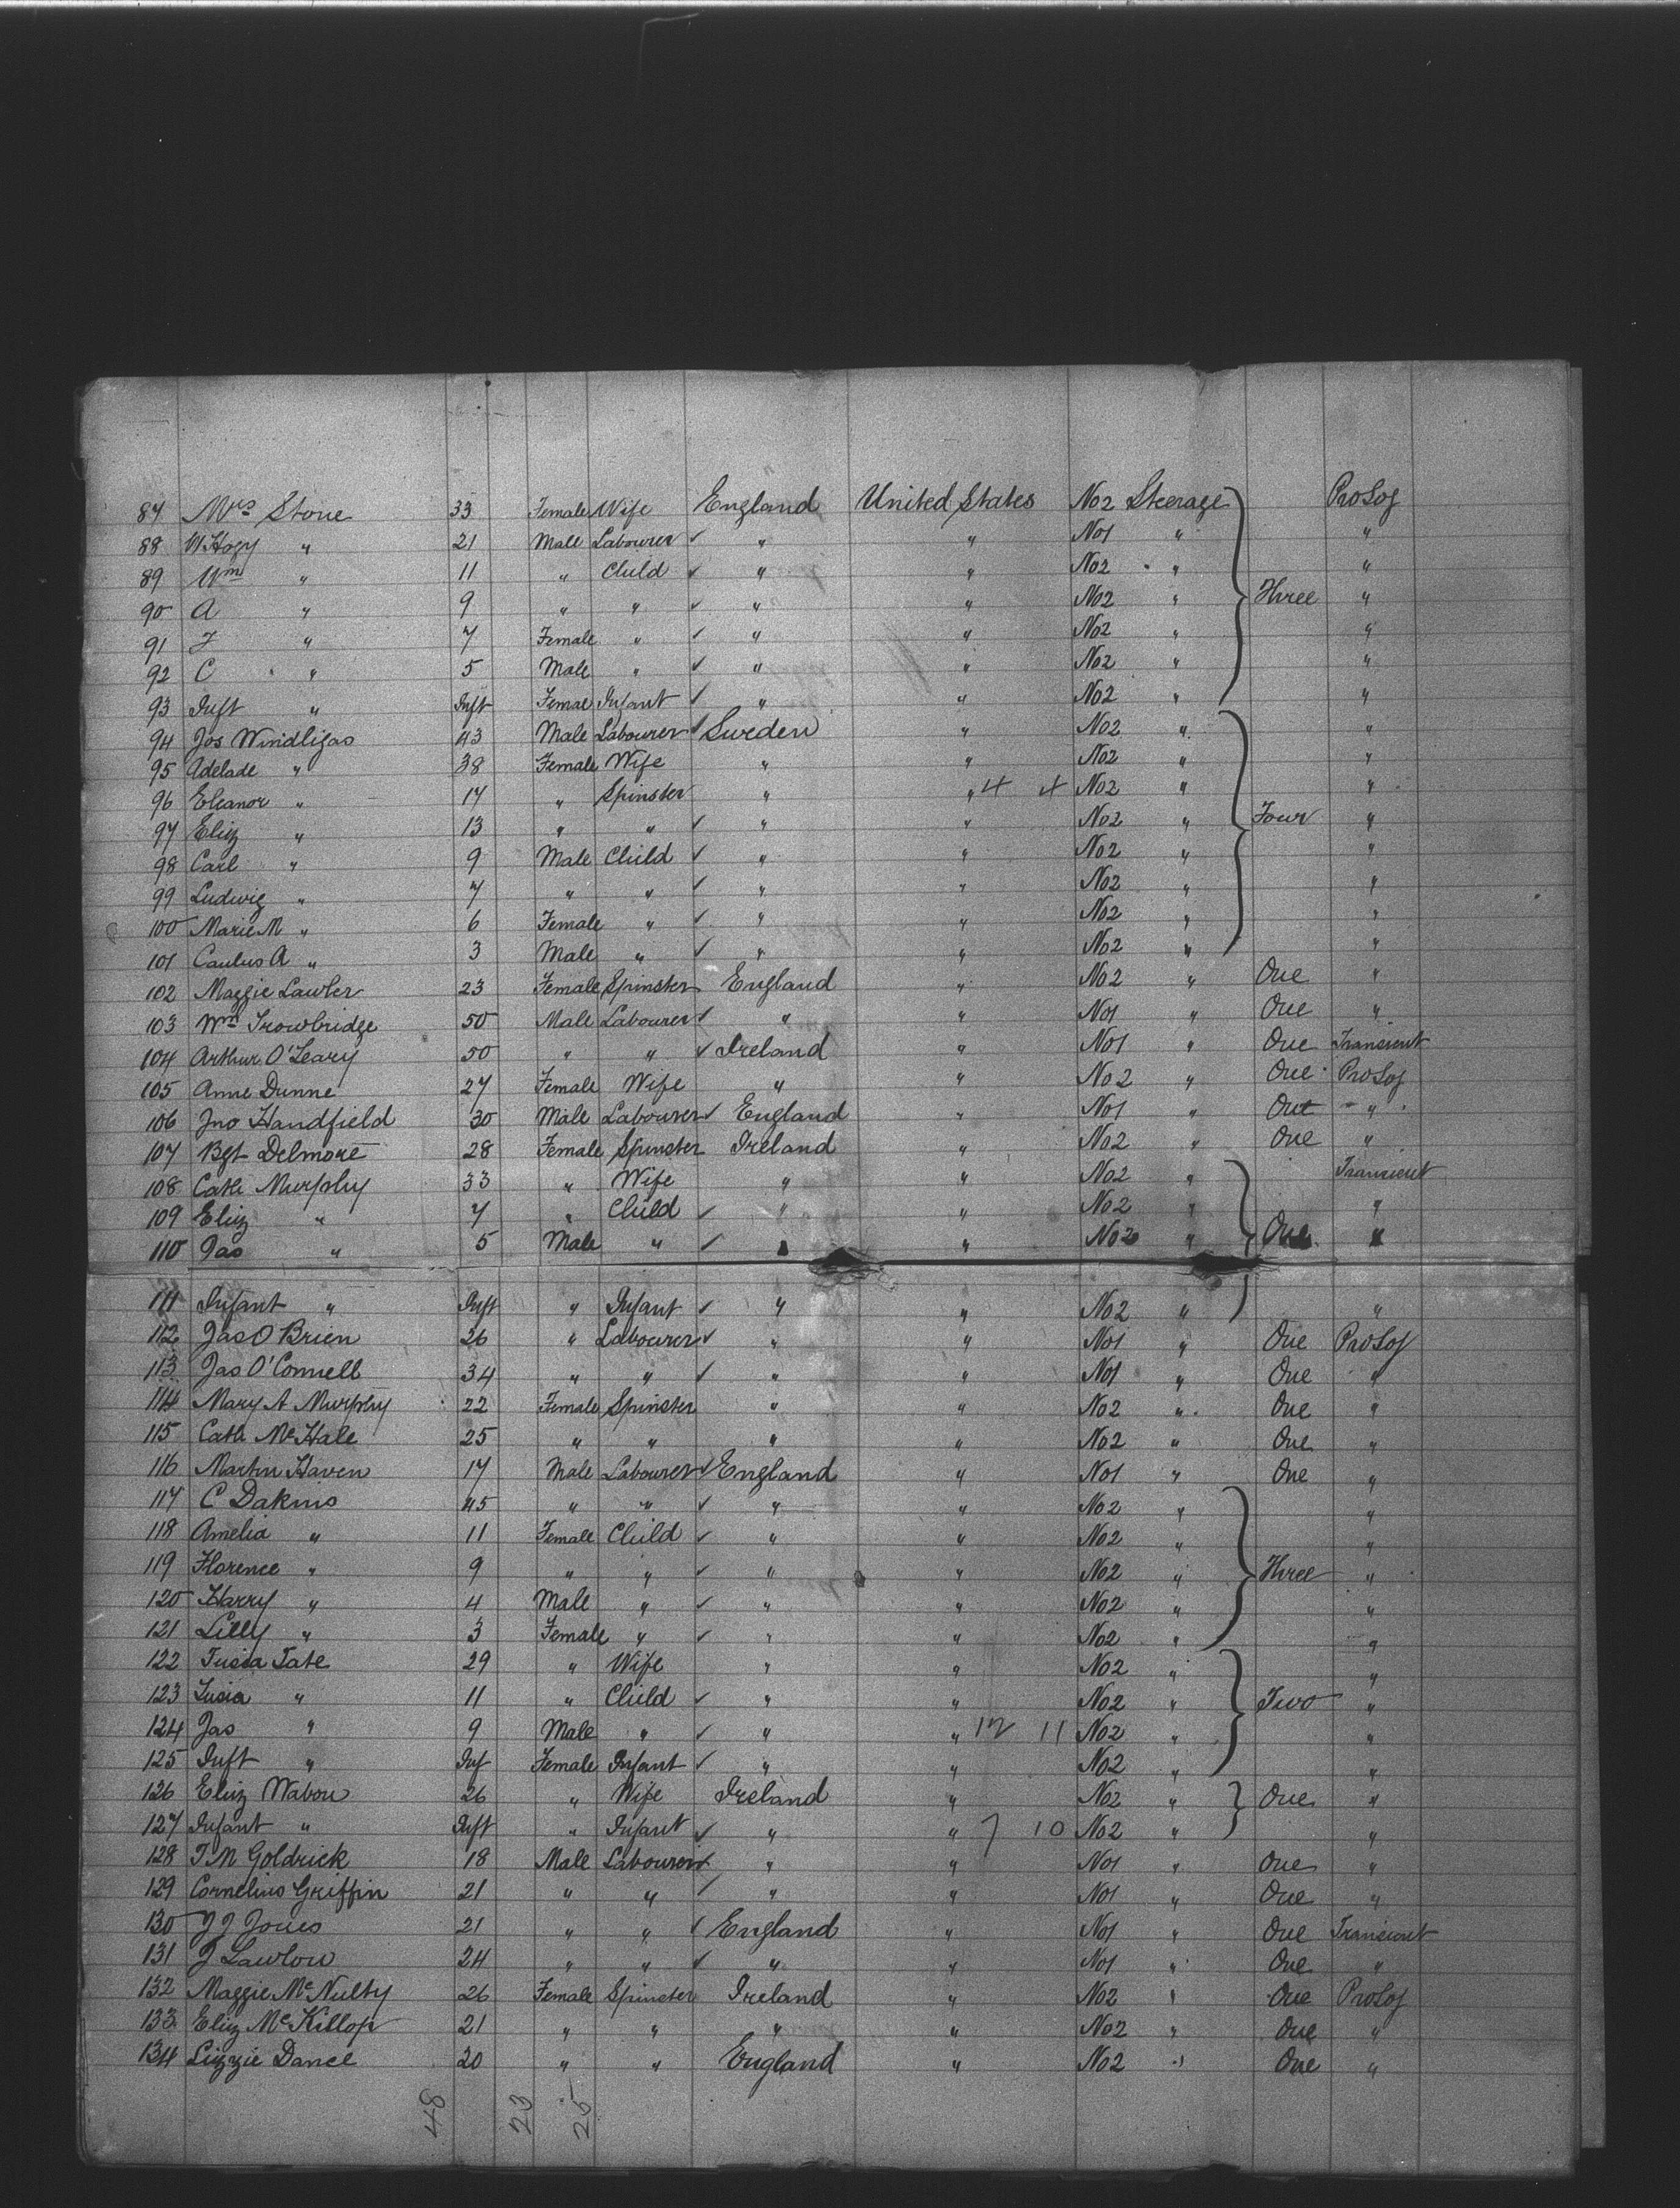 87 Mrs Stone 33 Female Wife England United States No2 Steerage ProSoj
88 W Hogy " 21 Male Labourer ✓ " " No1 " "
89 Wm " 11 " Child ✓ " " No2 " "
90 A " 9 " " ✓ " " No2 " Three "
91 F " 7 Female " ✓ " " No2 " "
92 C " 5 Male " ✓ " " No2 " "
93 Inft " Inft Femal Infant ✓ " " No2 " "
94 Jos Windligas 43 Male Labourer ✓ Sweden " No2 " "
95 Adelade " 38 Female Wife " " No2 " "
96 Eleanor " 17 " Spinster " " 4 4 No2 " "
97 Eliz " 13 " " ✓ " " No2 " Four "
98 Carl " 9 Male Child ✓ " " No2 " "
99 Ludwig " 7 " " ✓ " " No2 " "
100 Marie M " 6 Female " ✓ " " No2 " "
101 Caulus A " 3 Male " ✓ " " No2 " "
102 Maggie Lawler 23 Female Spinster England " No2 " One "
103 Wm Trowbridge 50 Male Labourer ✓ " " No1 " One "
104 Arthur O'Leary 50 " " ✓ Ireland " No1 " One Transient
105 Anne Dunne 27 Female Wife " " No2 " One ProSoj
106 Jno Handfield 30 Male Labourer ✓ England " No1 " One "
107 Bgt Delmore 28 Female Spinster Ireland " No2 " One "
108 Cath Murphy 33 " Wife " " No2 " Transient
109 Eliz " 7 " Child ✓ " " No2 " "
110 Jas " 5 Male " ✓ " " No2 " One "
111 Infant " Inft " Infant ✓ " " No2 " "
112 Jas O Brien 26 " Labourer ✓ " " No1 " One ProSoj
113 Jas O'Connell 34 " " ✓ " " No1 " One "
114 Mary A Murphy 22 Female Spinster " " No2 " One "
115 Cath McHale 25 " " " " No2 " One "
116 Martin Haven 17 Male Labourer ✓ England " No1 " One "
117 C Dakins 45 " " ✓ " " No2 " "
118 Amelia " 11 Female Child ✓ " " No2 " "
119 Florence " 9 " " ✓ " " No2 " Three "
120 Harry " 4 Male " ✓ " " No2 " "
121 Lilly " 3 Female " ✓ " " No2 " "
122 Tusia Tate 29 " Wife " " No2 " "
123 Lusia " 11 " Child ✓ " " No2 " Two "
124 Jas " 9 Male " ✓ " " 12 11 No2 " "
125 Inft " Inf Female Infant ✓ " " No2 " "
126 Eliz Mabon 26 " Wife Ireland " No2 " One "
127 Infant " Inft " Infant ✓ " " 7 10 No2 " "
128 T M Goldrick 18 Male Labourer ✓ " " No1 " One "
129 Cornelius Griffin 21 " " ✓ " " No1 " One "
130 J J Jones 21 " " ✓ England " No1 " One Transient
131 J Lawlow 24 " " ✓ " " No1 " One "
132 Maggie McNulty 26 Female Spinster Ireland " No2 " One ProSoj
133 Eliz McKillop 21 " " " " No2 " One "
134 Lizzie Dance 20 " " England " No2 " One "
48 23 25